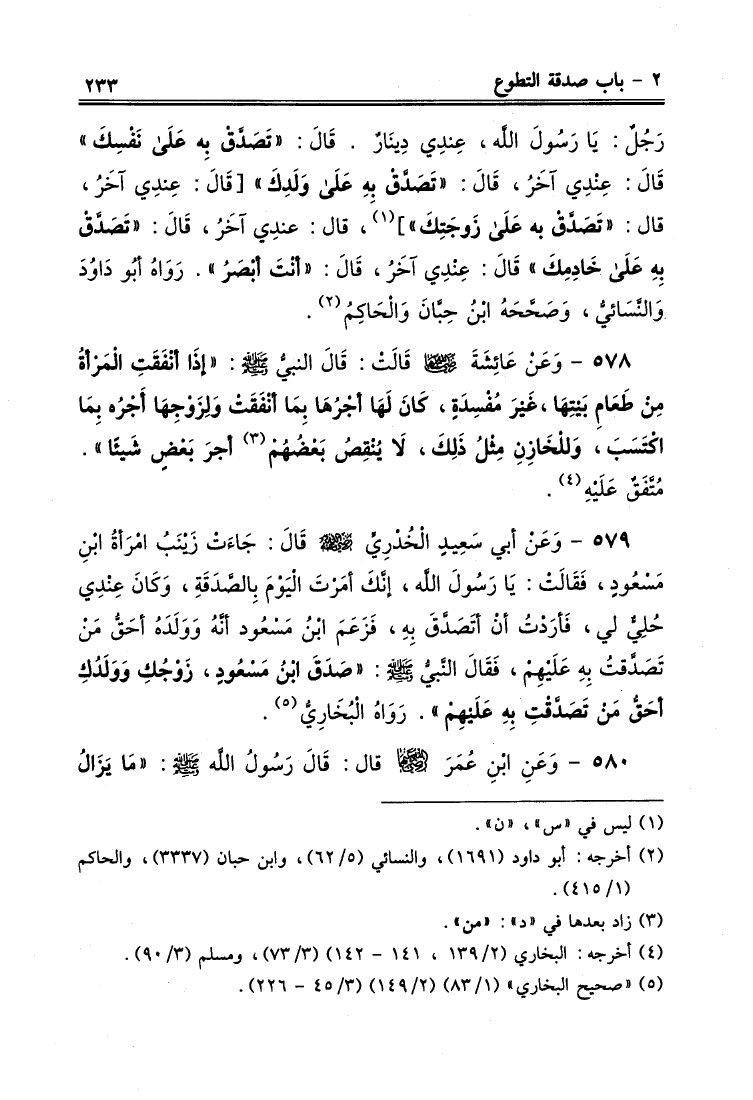 ٢ - باب صدقة التطوع ٢٣٣
رَجُلٌ : يَا رَسُولَ اللَّه ، عِندِي دِينَارٌ . قَالَ : «تَصَدَّقْ بِه عَلَىٰ نَفْسِكَ»
قَالَ : عِنْدِي آخَرُ ، قَالَ : «تَصَدَّقْ بِهِ عَلَىٰ وَلَدِكَ» [قَالَ : عِندِي آخَرُ ،
قال : «تَصَدَّقْ به عَلَىٰ زَوجَتِكَ»](١) ، قال : عندِي آخَر ، قَالَ : «تَصَدَّقْ
بِهِ عَلَىٰ خَادِمِكَ» قَالَ : عِنْدِي آخَرُ ، قَالَ : «أنْتَ أبْصَرُ» . رَوَاهُ أبُو دَاوُدَ
وَالنَّسَائيُّ ، وَصَحَّحَهُ ابْنُ حِبَّانَ وَالْحَاكِمُ(٢) .
٥٧٨ - وَعَنْ عَائِشَةَ رضي الله عنها قَالَتْ : قَالَ النبيُّ ﷺ : «إِذَا أنْفَقَتِ الْمَرْأةُ
مِنْ طَعَامِ بَيْتِهَا ، غَيْرَ مُفْسِدَةٍ ، كَانَ لَهَا أجْرُهَا بِمَا أنْفَقَتْ وَلِزَوجِهَا أجْرُه بِمَا
اكْتَسَبَ ، وَللْخَازِنِ مِثْلُ ذَلِكَ ، لَا يُنْقِصُ بَعْضُهُمْ(٣) أجرَ بَعْضٍ شَيئًا» .
مُتَّفَقٌ عَلَيْهِ(٤) .
٥٧٩ - وَعَنْ أبي سَعِيدٍ الْخُدْرِيِّ رضي الله عنه قَالَ : جَاءَتْ زَيْنَبُ امْرَأةُ ابْنِ
مَسْعُودٍ ، فَقَالَتْ : يَا رَسُولَ الله ، إنَّكَ أمَرْتَ الْيَوْمَ بِالصَّدَقَةِ ، وَكَانَ عِنْدِي
حُلِيٌّ لي ، فَأرَدْتُ أنْ أتَصَدَّقَ بِهِ ، فَزَعَمَ ابْنُ مَسْعُود أنَّهُ وَوَلَدَهُ أحَقُّ مَنْ
تَصَدَّقتُ بِهِ عَلَيْهِمْ ، فَقَالَ النَّبيُّ ﷺ : «صَدَقَ ابْنُ مَسْعُودٍ ، زَوْجُكِ وَوَلَدُكِ
أحَقُّ مَنْ تَصَدَّقْتِ بِهِ عَلَيْهِمْ» . رَوَاهُ الْبُخَارِيُّ(٥) .
٥٨٠ - وَعَنِ ابْنِ عُمَرَ رضي الله عنهما قال : قَالَ رَسُولُ اللَّه ﷺ : «مَا يَزَالُ
(١) ليس في «س» ، «ن» .
(٢) أخرجه : أبو داود (١٦٩١) ، والنسائي (٥/ ٦٢) ، وابن حبان (٣٣٣٧) ، والحاكم
(١/ ٤١٥) .
(٣) زاد بعدها في «د» : «من» .
(٤) أخرجه : البخاري (٢/ ١٣٩ ، ١٤١ - ١٤٢) (٣/ ٧٣) ، ومسلم (٣/ ٩٠) .
(٥) «صحيح البخاري» (١/ ٨٣) (٢/ ١٤٩) (٣/ ٤٥ - ٢٢٦) .